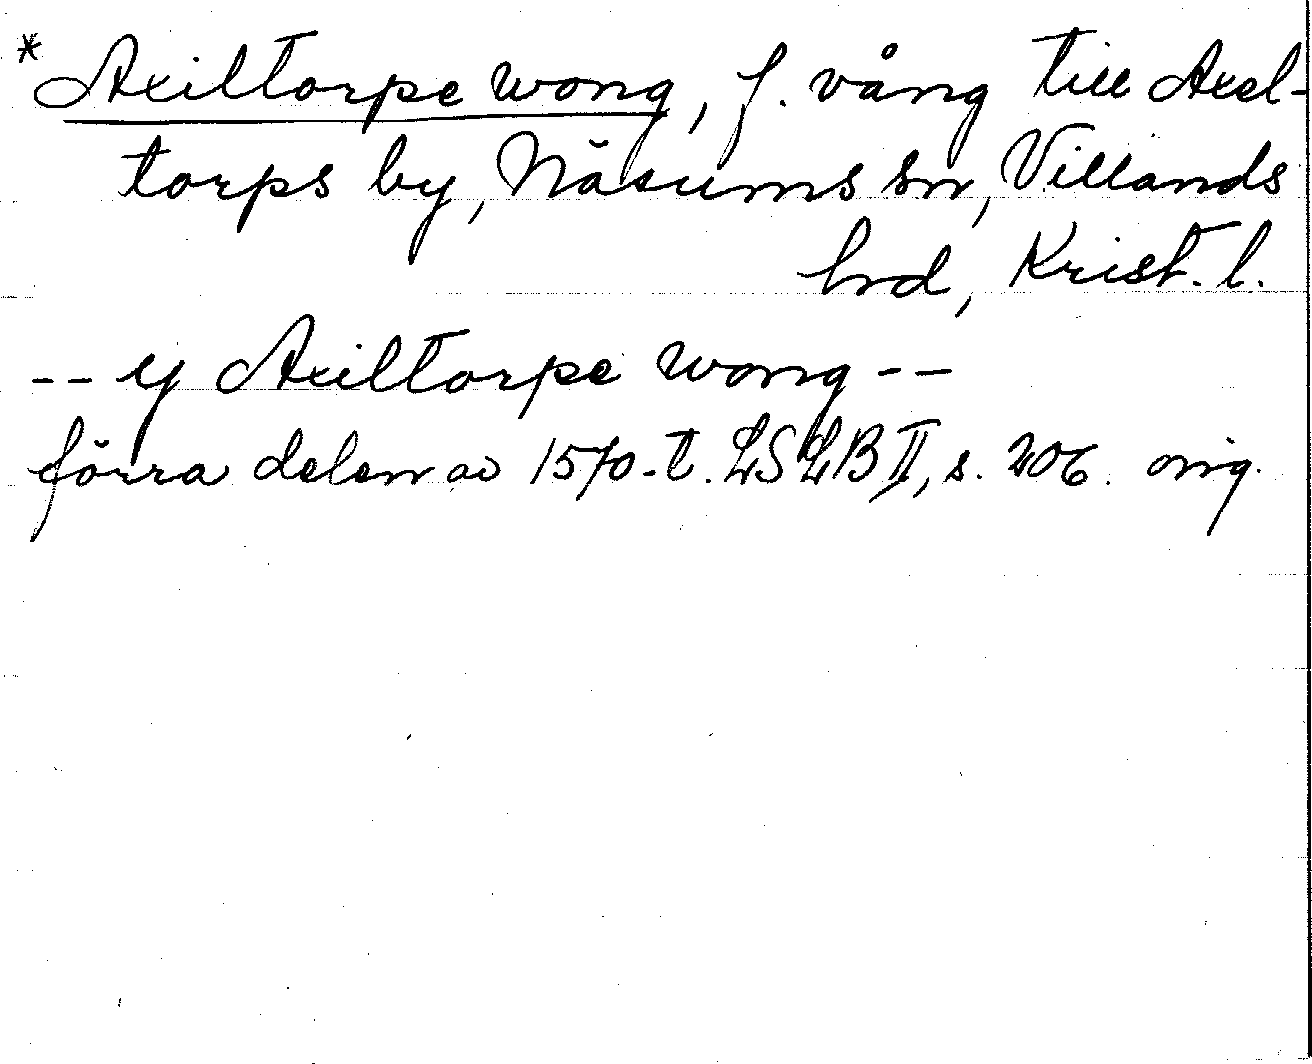 * Axiltorpe wong, f. vång till Axel-
torps by, Näsums sn, Villands
hrd, Krist. l.
-- y Axiltorpe wong --
förra delen av 1570-t. LSLB II, s. 206. orig.